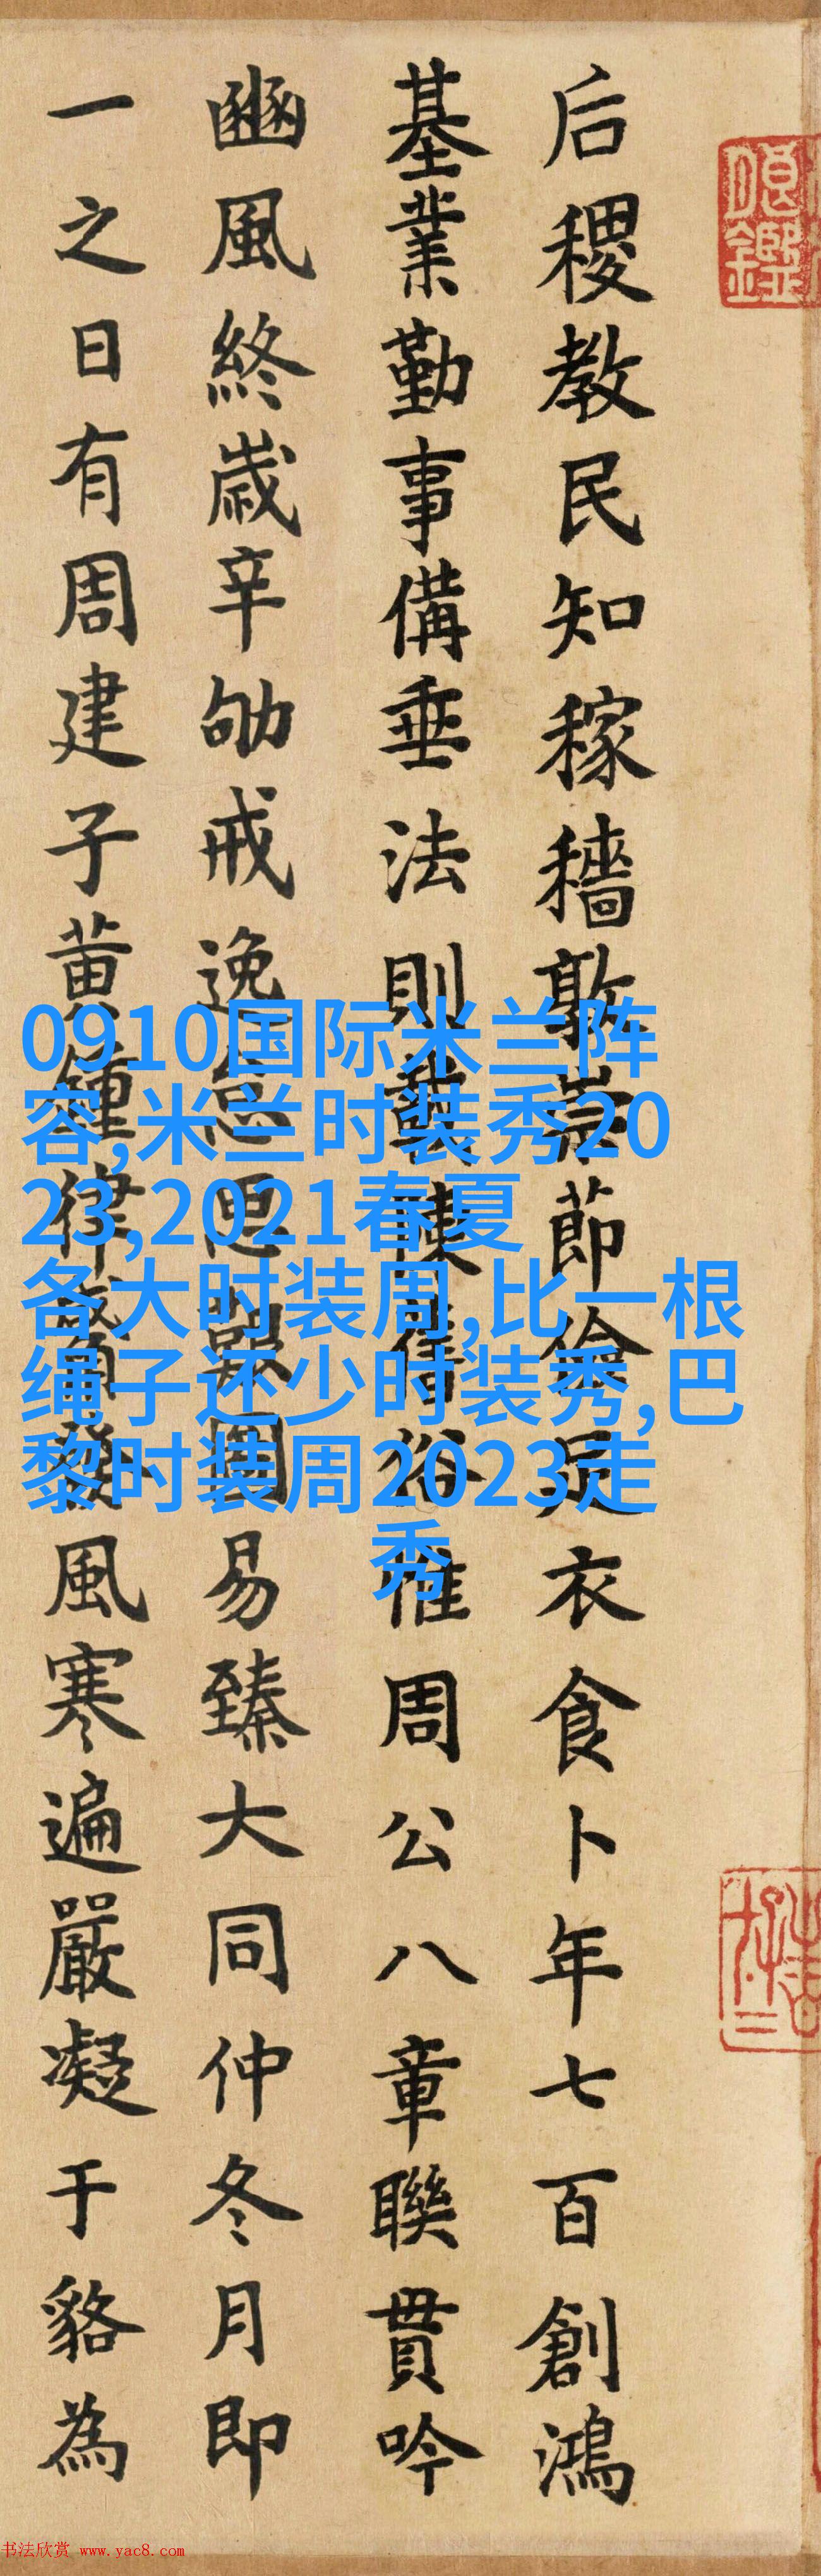 后稷教民知稼穡敦崇節儉足衣食卜年七百創鴻
基業勤事備垂法則陳舊俗惟周公八章聯貫吟
豳風終歲辛劬戒逸思艱圖易臻大同仲冬月即
一之日有周建子黃鍾律發風寒遍嚴凝于貉為
0910国际米兰阵
容,米兰时装秀20
23,2021春夏
各大时装周,比一根
绳子还少时装秀,巴
黎时装周2023走
秀
书法欣赏 www.yac8.com